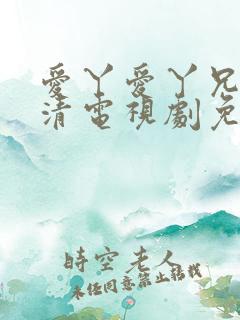 愛丫愛丫兄
清電視劇免
時空老人
未經同意禁止轉載